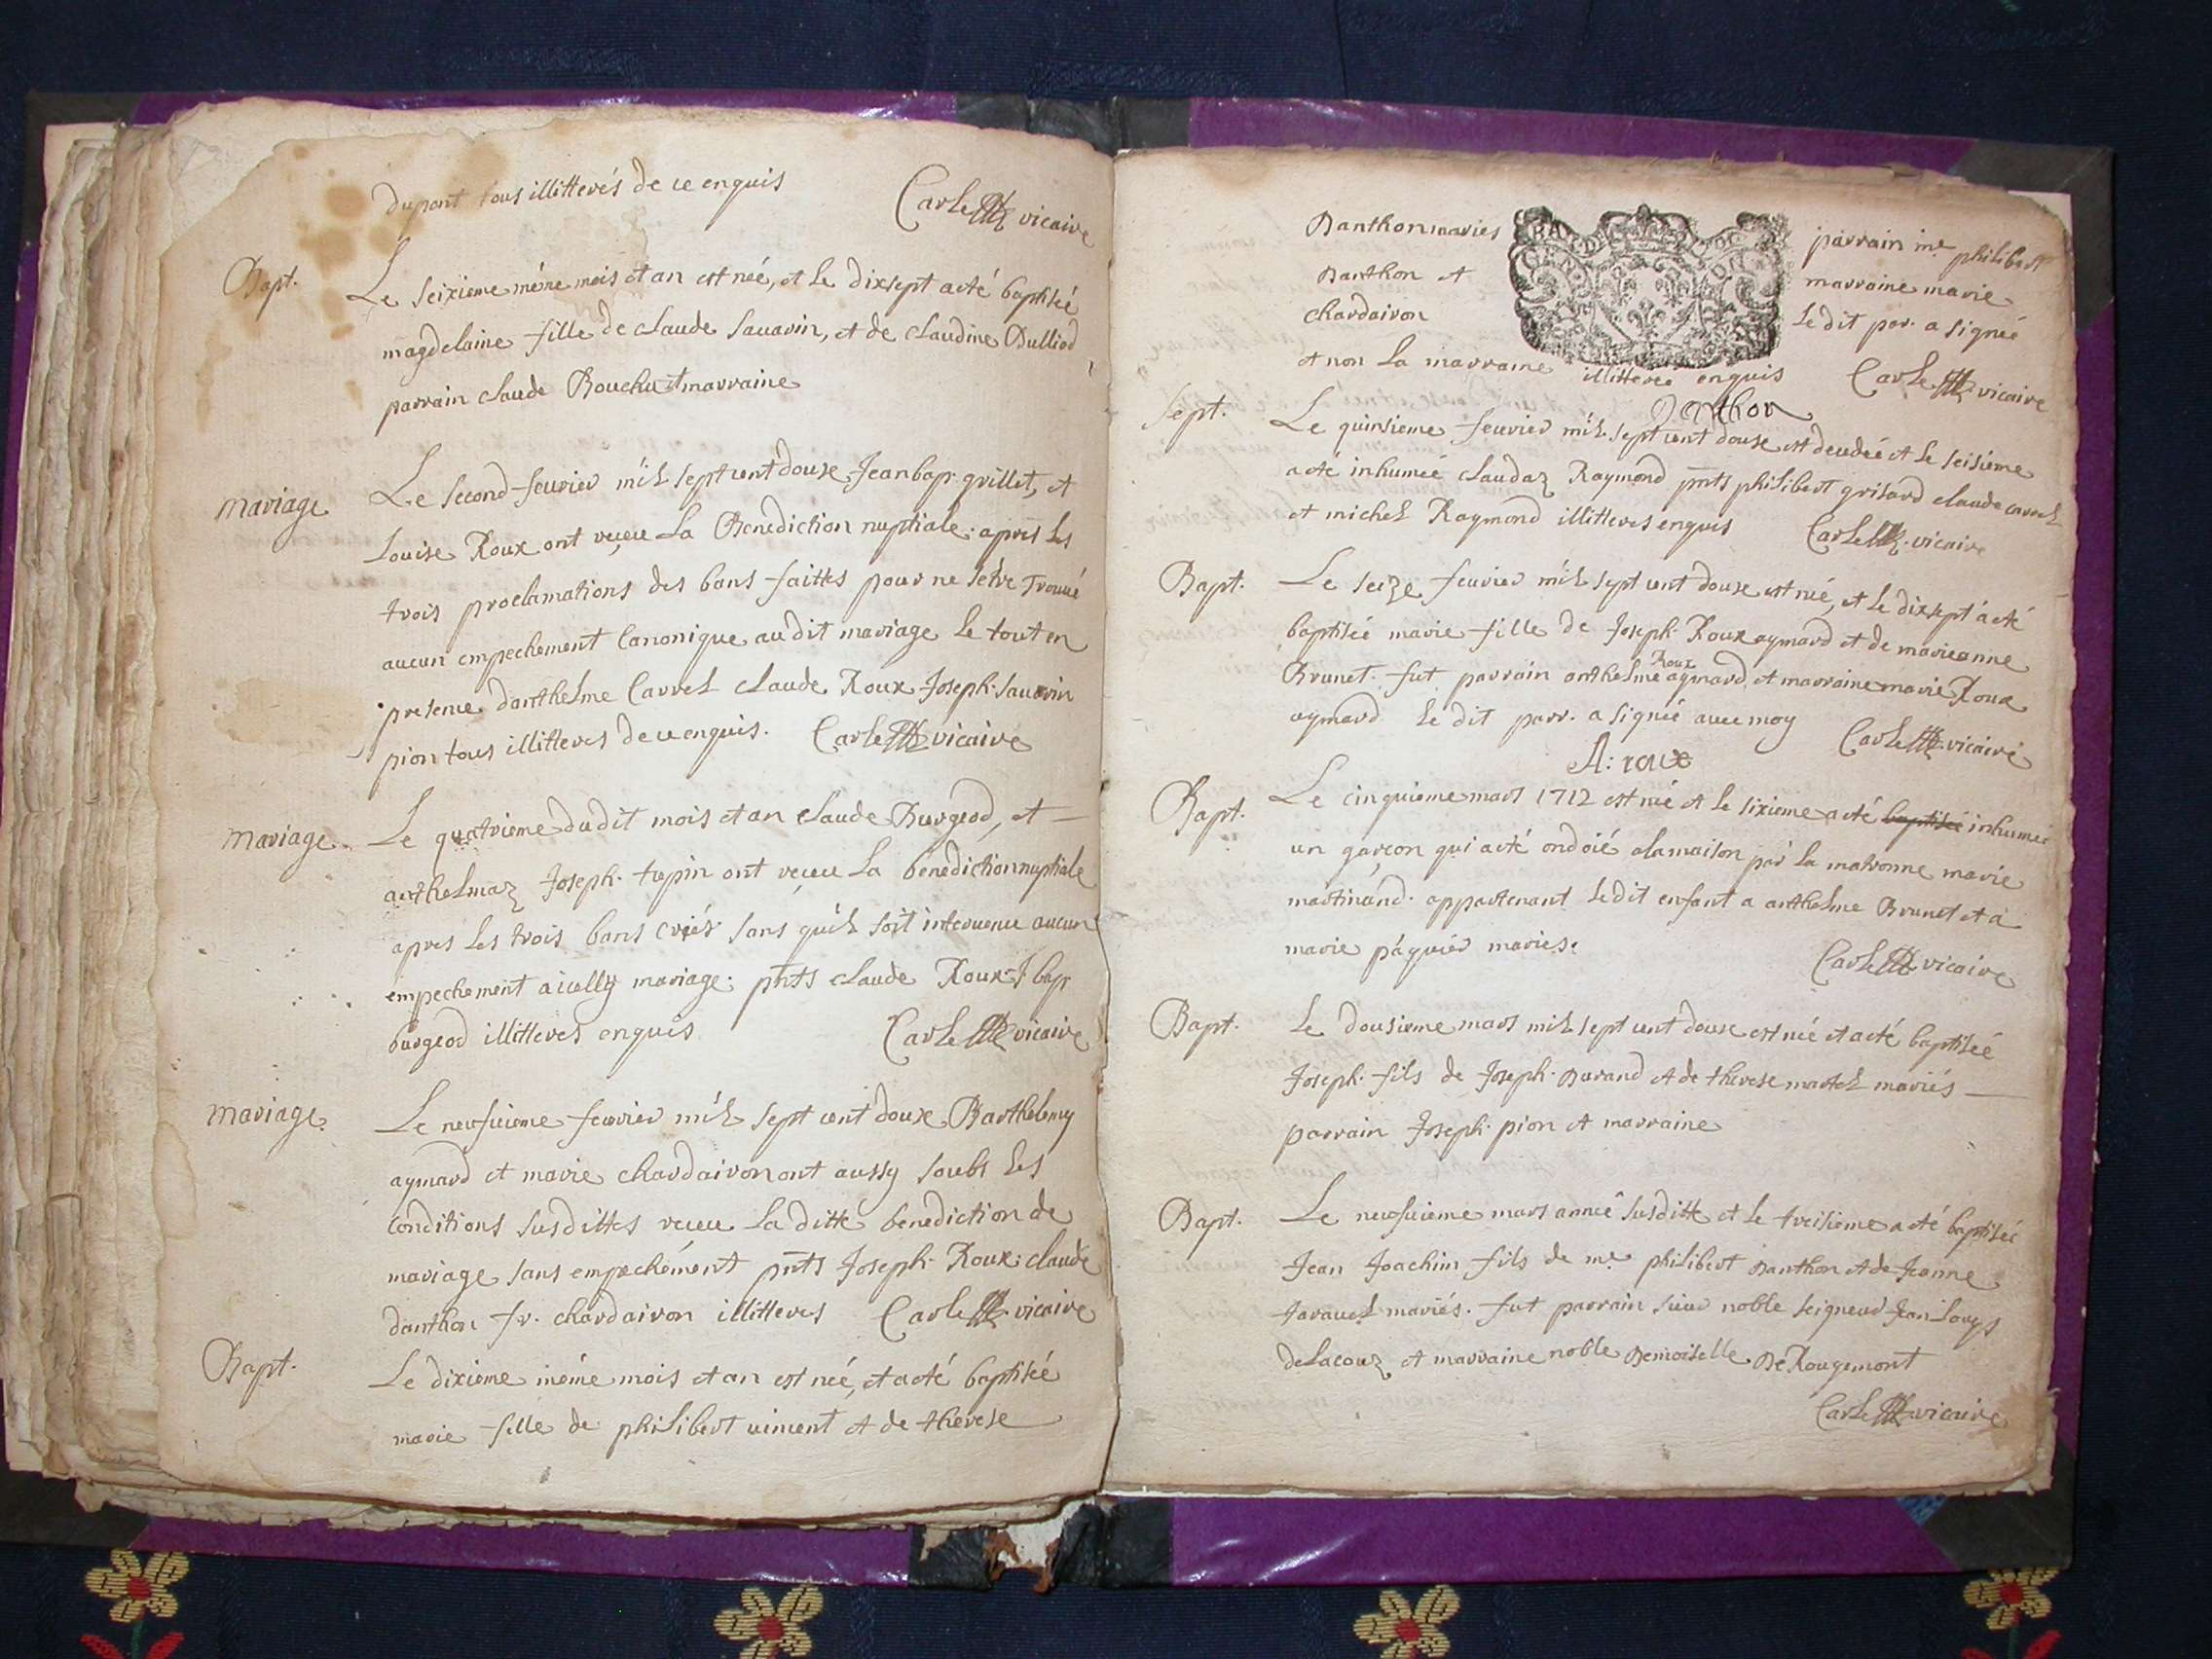 dupont tous illitterés de ce enquis Carle vicaire
Bapt. Le seixieme méme mois et an est née, et le dixsept a eté baptisée
magdelaine fille de claude sauarin, et de claudine Dulliod
parrain claude Bouchu et marraine
mariage Le second feuvier mil sept cent douze Jean bap. grillet, et
Louise Roux ont reçeu la Benediction nuptiale. apres les
trois proclamations des bans faittes pour ne sétre trouué
aucun empechement Canonique audit mariage le tout en
presence danthelme Carrel claude Roux Joseph. sauarin
pion tous illitteres de ce enquis. Carle vicaire
mariage Le quatrieme dudit mois et an claude Burgeod, et
anthelmaz Joseph. tupin ont reçeu la benediction nuptiale
apres les trois bans criés sans quil soit interuenu aucun
empechement a icelly mariage. pnts claude Roux J bap
burgeod illitteres enquis Carle vicaire
mariage. Le neufuieme feuvier mil sept cent douze Barthelemy
aymard et marie chardairon ont aussy soubs les
conditions susdittes receu la ditte benediction de
mariage sans empechément pnts Joseph. Roux. claude
danthon fr. chardairon illitteres Carle vicaire
Bapt. Le dixieme méme mois et an est née, et a eté baptisée
marie fille de philibert uiment et de therese
Danthon maries parrain me. philibert
Danthon et marraine marie
chardairon le dit par. a signée
et non la marraine illitteree enquis Carle vicaire
Danthon
Sept. Le quinsieme feuvier mil sept cent douse est decedée et le seisieme
a eté inhumée claudaz Raymond pnts philibert grisard claude carrel
et michel Raymond illitteres enquis Carle vicaire
Bapt. Le seize feuvier mil sept cent douse est née, et le dixsept a eté
baptisée marie fille de Joseph. Roux aymard et de marieanne
Brunet. fut parrain anthelme Roux aymard et marraine marie Roux
aymard le dit parr. a signée auec moy Carle vicaire
A: roux
Bapt. Le cinquieme mars 1712 est né et le sixieme a eté baptisée inhumée
un garçon qui a eté ondoié a la maison par la matronne marie
martinand. appartenant ledit enfant a anthelme Brunet et a
marie páquier maries. Carle vicaire
Bapt. Le dousieme mars mil sept cent douse est née et a eté baptisée
Joseph. fils de Joseph. Durand et de therese martel mariés
parrain Joseph. pion et marraine
Bapt. Le neufuieme mars année susditte et le treisieme a eté baptisée
Jean Joachim fils de me. philibert Danthon et de Jeanne
tarauel mariés. fut parrain sieur noble seigneur Jean Louys
de Lacouz et marraine noble Demoiselle De Rougemont
Carle vicaire